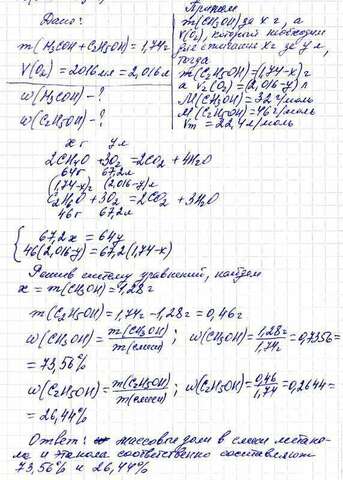 Дано:
m(CH3OH + C2H5OH) = 1,74г
V(O2) = 2016мл = 2,016л
w(CH3OH) - ?
w(C2H5OH) - ?
Примем
m(CH3OH) до x г, а
V(O2), который необходим
для сжигания xг до y л,
тогда
m(C2H5OH) = (1,74-x)г
а V2(O2) = (2,016-y) л
M(CH3OH) = 32 г/моль
M(C2H5OH) = 46 г/моль
Vm = 22,4 л/моль
x г y л
2CH4O + 3O2 = 2CO2 + 4H2O
64г 67,2л
(1,74-x)г (2,016-y)л
C2H6O + 3O2 = 2CO2 + 3H2O
46г 67,2л
67,2x = 64y
46(2,016-y) = 67,2(1,74-x)
Решив систему уравнений, найдем
x = m(CH3OH) = 1,28г
m(C2H5OH) = 1,74г - 1,28г = 0,46г
w(CH3OH) = m(CH3OH)/m(смеси); w(CH3OH) = 1,28г/1,74г = 0,7356 =
= 73,56%
w(C2H5OH) = m(C2H5OH)/m(смеси); w(C2H5OH) = 0,46/1,74 = 0,2644 =
= 26,44%
Ответ: массовые доли в смеси метано-
ла и этанола соответственно составляют
73,56% и 26,44%